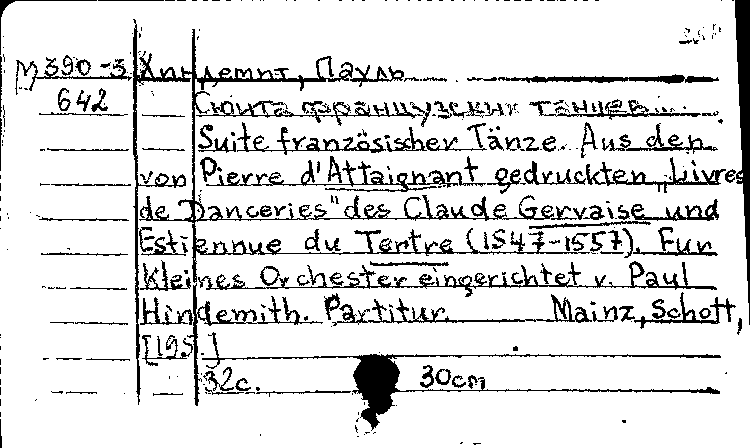 М 390-3 Хиндемит, Пауль
642 Сюита французских танцев...
Suite französischer Tänze. Aus den
von Pierre d'Attaignant gedruckten „Livres
de Danceries" des Claude Gervaise und
Estiennue du Tertre (1547-1557). Fur
kleines Orchester eingerichtet v. Paul
Hindemith. Partitur. Mainz, Schott,
[195.]
32с. 30cm